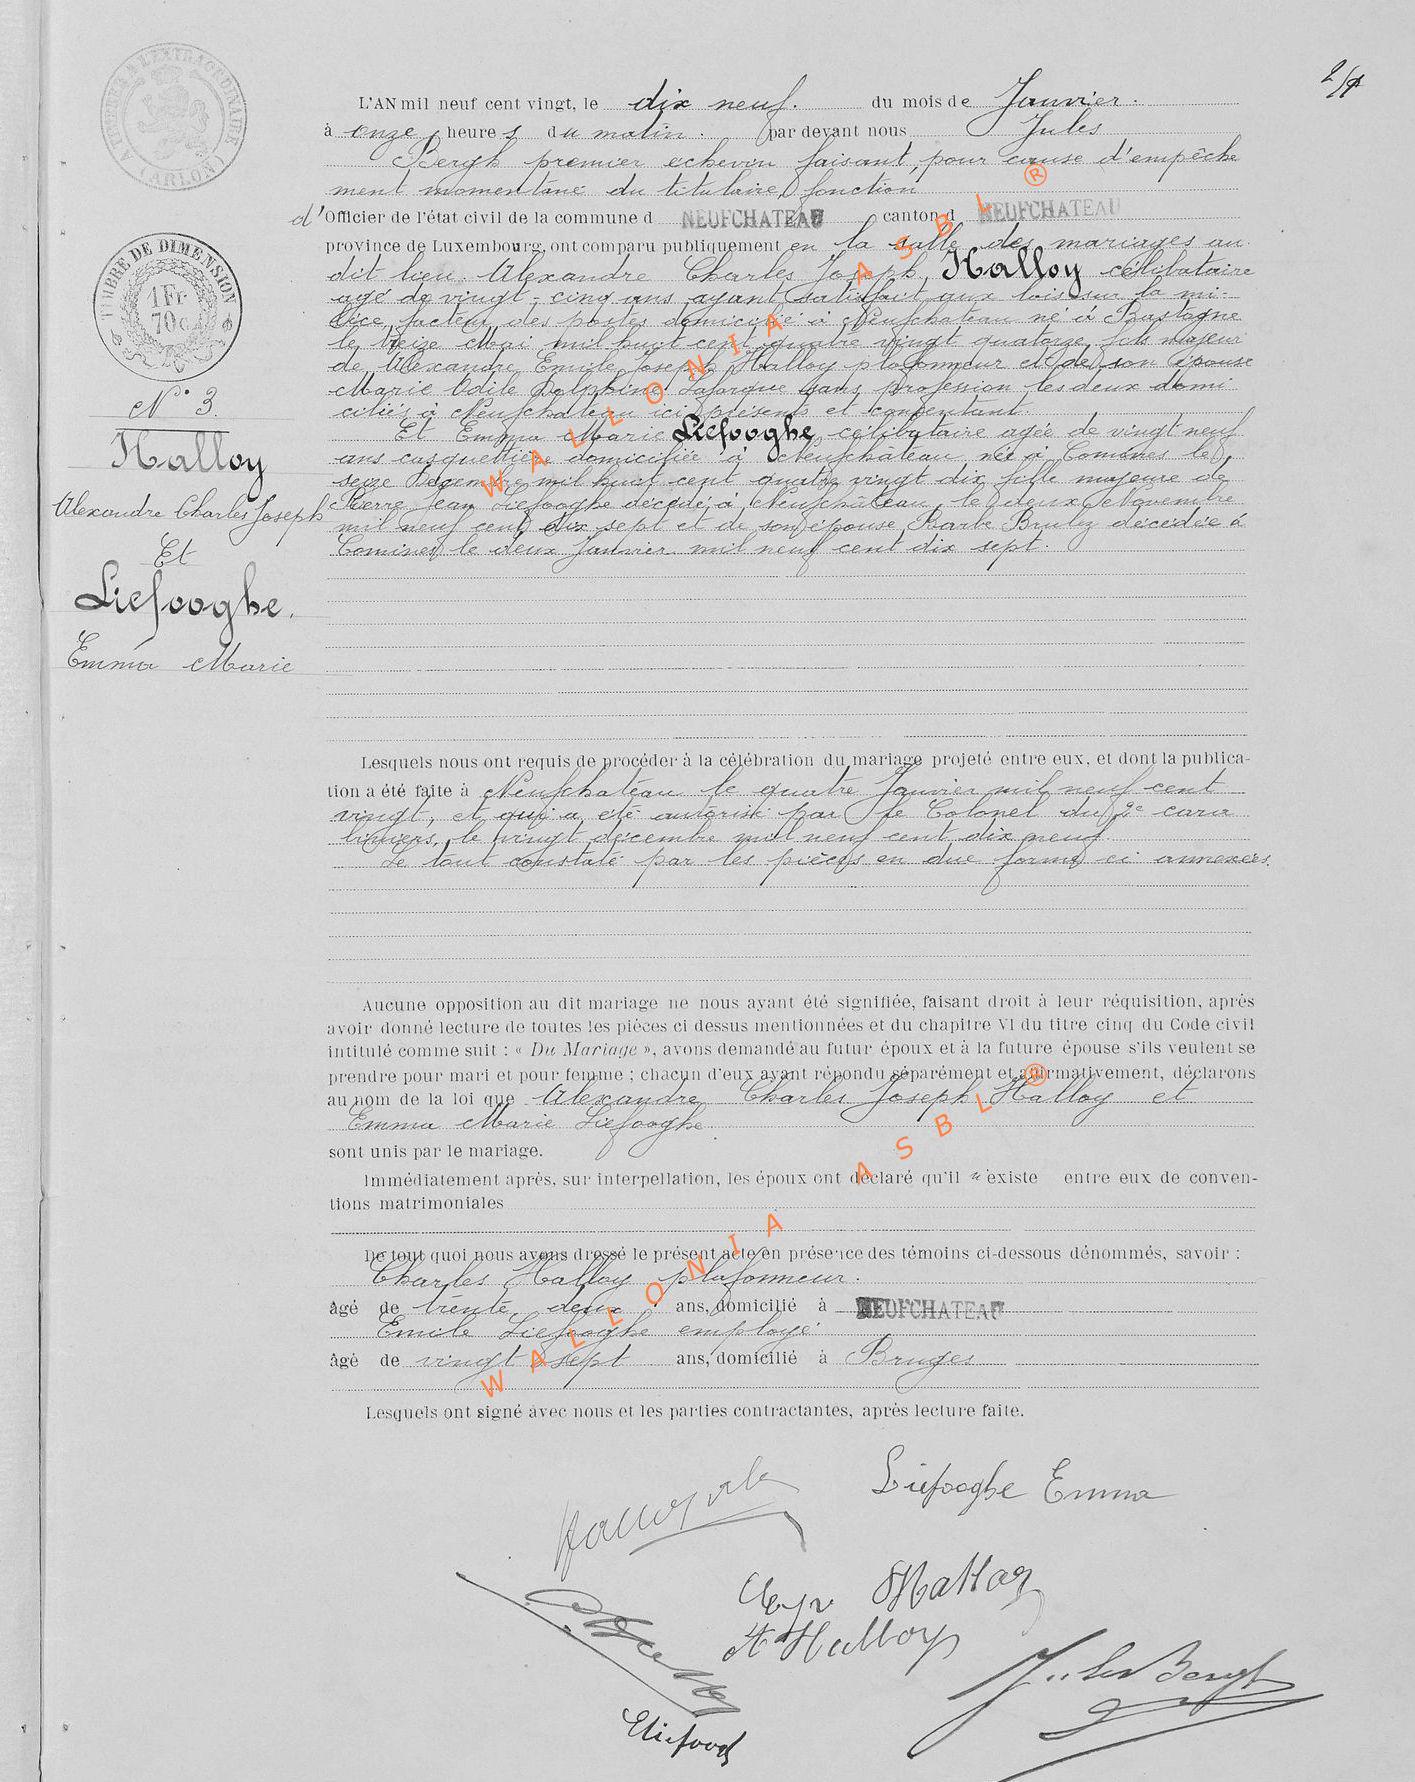 2/9
A TIMBRER A L'EXTRAORDINAIRE
(ARLON)
TIMBRE DE DIMENSION
1 Fr
70 c.
N° 3.
Halloy
Alexandre Charles Joseph
Et
Liefooghe.
Emma Marie
L'AN mil neuf cent vingt, le dix neuf. du mois de Janvier.
à onze heures du matin. par devant nous Jules
Bergh premier echevin faisant, pour cause d'empêche
ment momentané du titulaire, fonction
d'Officier de l'état civil de la commune d NEUFCHATEAU canton d NEUFCHATEAU
province de Luxembourg, ont comparu publiquement en la salle des mariages au
dit lieu. Alexandre Charles Joseph Halloy célibataire
agé de vingt-cinq ans ayant satisfait aux lois sur la mi-
lice, facteur des postes domicilié à Neufchateau né à Bastogne
le treize Mai mil huit cent quatre vingt quatorze, fils majeur
de Alexandre Emile Joseph Halloy plafonneur et de son épouse
Marie Odile Delphine Lafargue sans profession les deux domi
ciliés à Neufchateau ici présents et consentant.
Et Emma Marie Liefooghe, célibataire agée de vingt neuf
ans casquettière domiciliée à Neufchateau née à Comines le
seize Décembre mil huit cent quatre vingt dix fille majeure de
Pierre Jean Liefooghe décédé à Neufchâteau le deux Novembre
mil neuf cent dix sept et de son épouse Barbe Brulez décédée à
Comines le deux Janvier mil neuf cent dix sept.
Lesquels nous ont requis de procéder à la célébration du mariage projeté entre eux, et dont la publica-
tion a été faite à Neufchatéau le quatre Janvier mil neuf cent
vingt, et qui a été autorisé par le Colonel du 2e cara
biniers, le vingt décembre mil neuf cent dix neuf
Le tout constaté par les pièces en due forme ci annexées.
Aucune opposition au dit mariage ne nous ayant été signifiée, faisant droit à leur réquisition, après
avoir donné lecture de toutes les pièces ci dessus mentionnées et du chapitre VI du titre cinq du Code civil
intitulé comme suit : « Du Mariage », avons demandé au futur époux et à la future épouse s'ils veulent se
prendre pour mari et pour femme ; chacun d'eux ayant répondu séparément et affirmativement, déclarons
au nom de la loi que Alexandre Charles Joseph Halloy et
Emma Marie Liefooghe
sont unis par le mariage.
Immédiatement après, sur interpellation, les époux ont déclaré qu'il n'existe entre eux de conven-
tions matrimoniales
De tout quoi nous avons dressé le présent acte en présence des témoins ci-dessous dénommés, savoir :
Charles Halloy plafonneur.
âgé de trente deux ans, domicilié à NEUFCHATEAU
Emile Liefooghe employé
âgé de vingt sept ans, domicilié à Bruges
Lesquels ont signé avec nous et les parties contractantes, après lecture faite.
Liefooghe Emma
Halloy
A Halloy
Jules Bergh
WALLONIA ASBL ®
WALLONIA ASBL ®